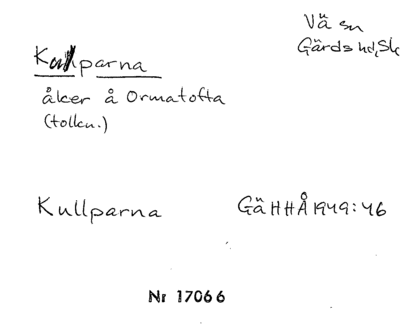 Vä sn
Gärds hd, Sk
Kullparna
åker å Ormatofta
(tolkn.)
Kullparna GäHHÅ 1949:46
Nr 17066